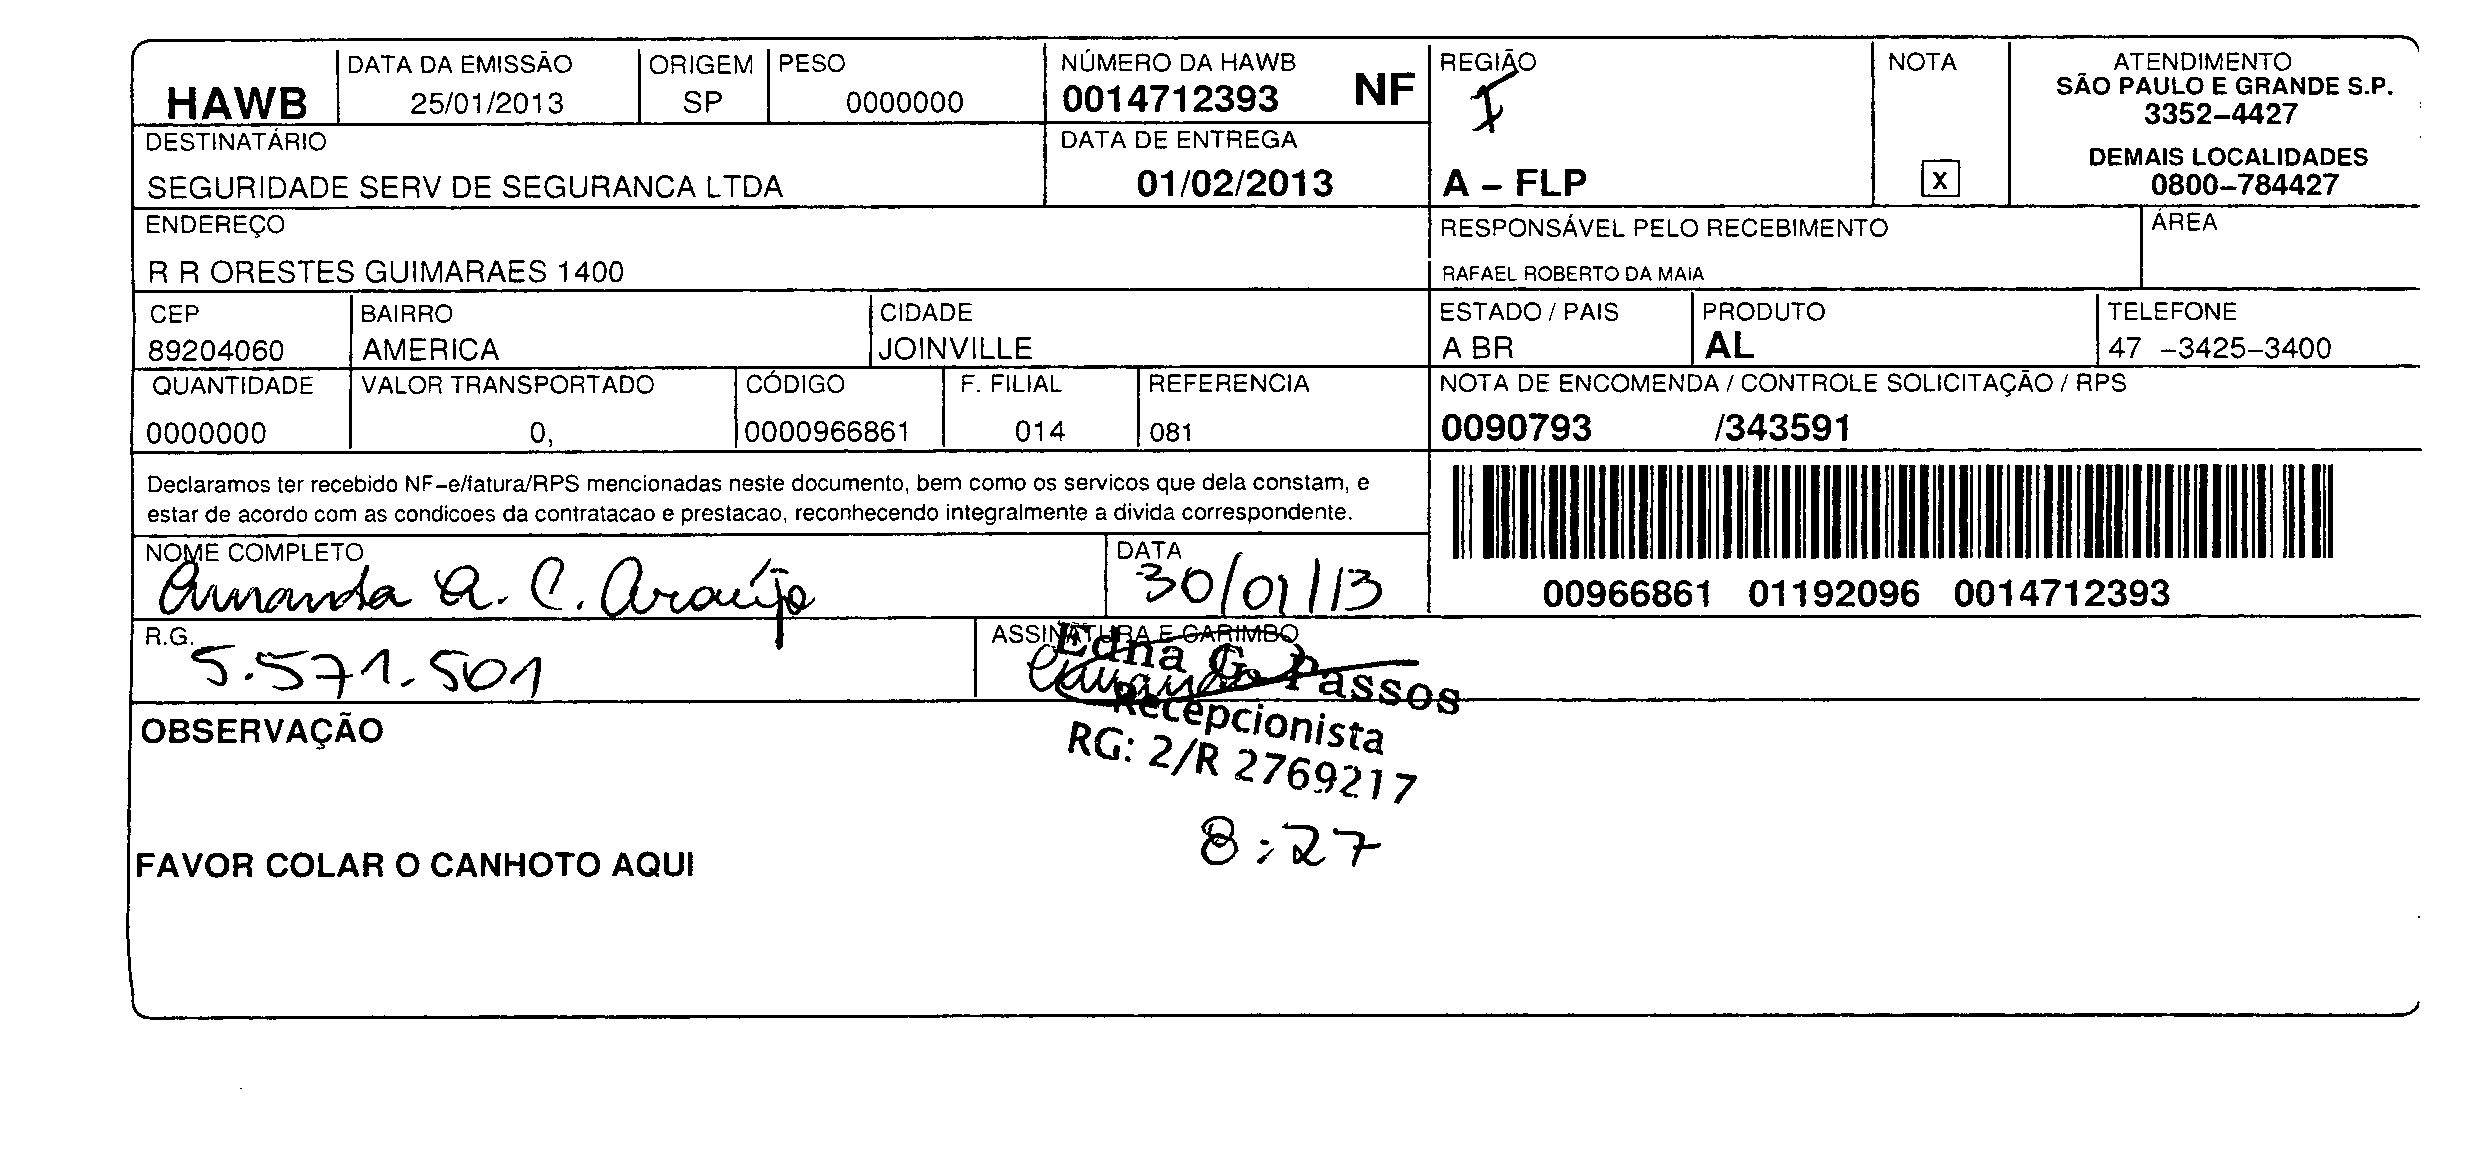 HAWB
DATA DA EMISSÃO
25/01/2013
ORIGEM
SP
PESO
0000000
NÚMERO DA HAWB
0014712393 NF
REGIÃO
I
A – FLP
NOTA
X
ATENDIMENTO
SÃO PAULO E GRANDE S.P.
3352–4427
DEMAIS LOCALIDADES
0800–784427
DESTINATÁRIO
SEGURIDADE SERV DE SEGURANCA LTDA
DATA DE ENTREGA
01/02/2013
ENDEREÇO
R R ORESTES GUIMARAES 1400
RESPONSÁVEL PELO RECEBIMENTO
RAFAEL ROBERTO DA MAIA
ÁREA
CEP
89204060
BAIRRO
AMERICA
CIDADE
JOINVILLE
ESTADO / PAIS
A BR
PRODUTO
AL
TELEFONE
47 –3425–3400
QUANTIDADE
0000000
VALOR TRANSPORTADO
0,
CÓDIGO
0000966861
F. FILIAL
014
REFERENCIA
081
NOTA DE ENCOMENDA / CONTROLE SOLICITAÇÃO / RPS
0090793 /343591
Declaramos ter recebido NF–e/fatura/RPS mencionadas neste documento, bem como os servicos que dela constam, e
estar de acordo com as condicoes da contratacao e prestacao, reconhecendo integralmente a divida correspondente.
00966861 01192096 0014712393
NOME COMPLETO
Amanda A. C. Araújo
DATA
30/01/13
R.G.
5.571.501
ASSINATURA E CARIMBO
Edna G. Passos
Amanda
Recepcionista
RG: 2/R 2769217
8:27
OBSERVAÇÃO
FAVOR COLAR O CANHOTO AQUI